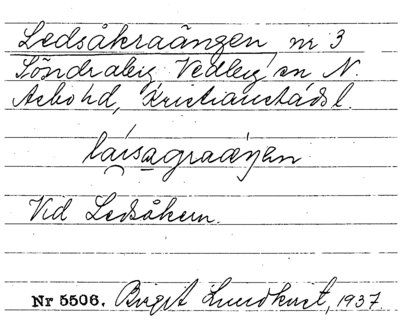 Ledsåkraängen, nr 3
Söndraby, Vedby sn N.
Åsbo hd, Kristianstads l.
Vid Ledsåkern.
Nr 5506. Birgit Lundkvist, 1937